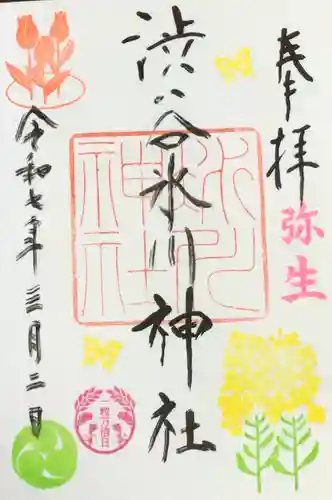 奉拝
弥生
渋谷氷川神社
氷川神社
令和七年三月二日